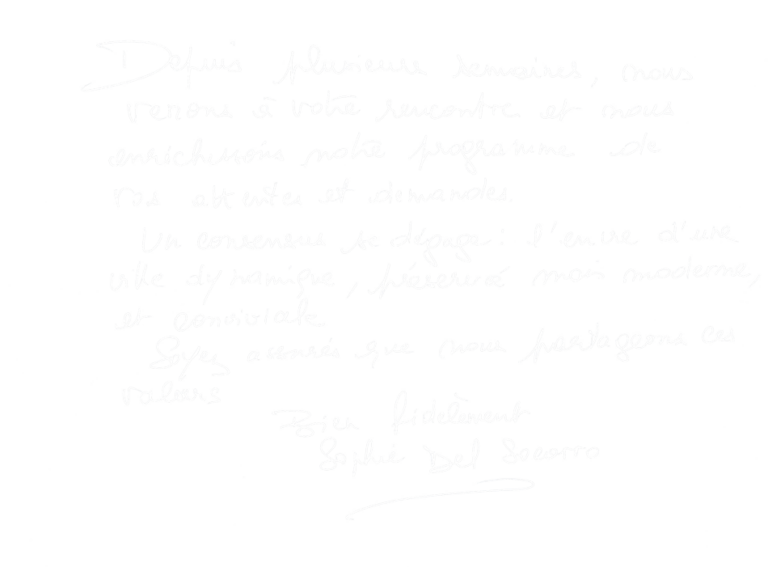 Depuis plusieurs semaines, nous
venons à votre rencontre et nous
enrichissons notre programme de
vos attentes et demandes
Un consensus se dégage : l'envie d'une
ville dynamique, préservée mais moderne,
et conviviale
Soyez assurés que nous partageons ces
valeurs
Bien fidèlement
Sophie Del Socorro